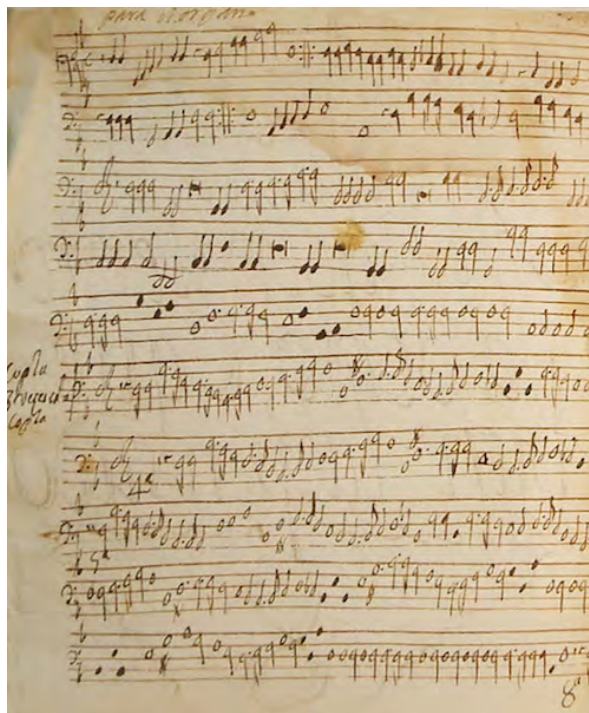 para el organo
Copla
Copla
4ª
5ª
8ª